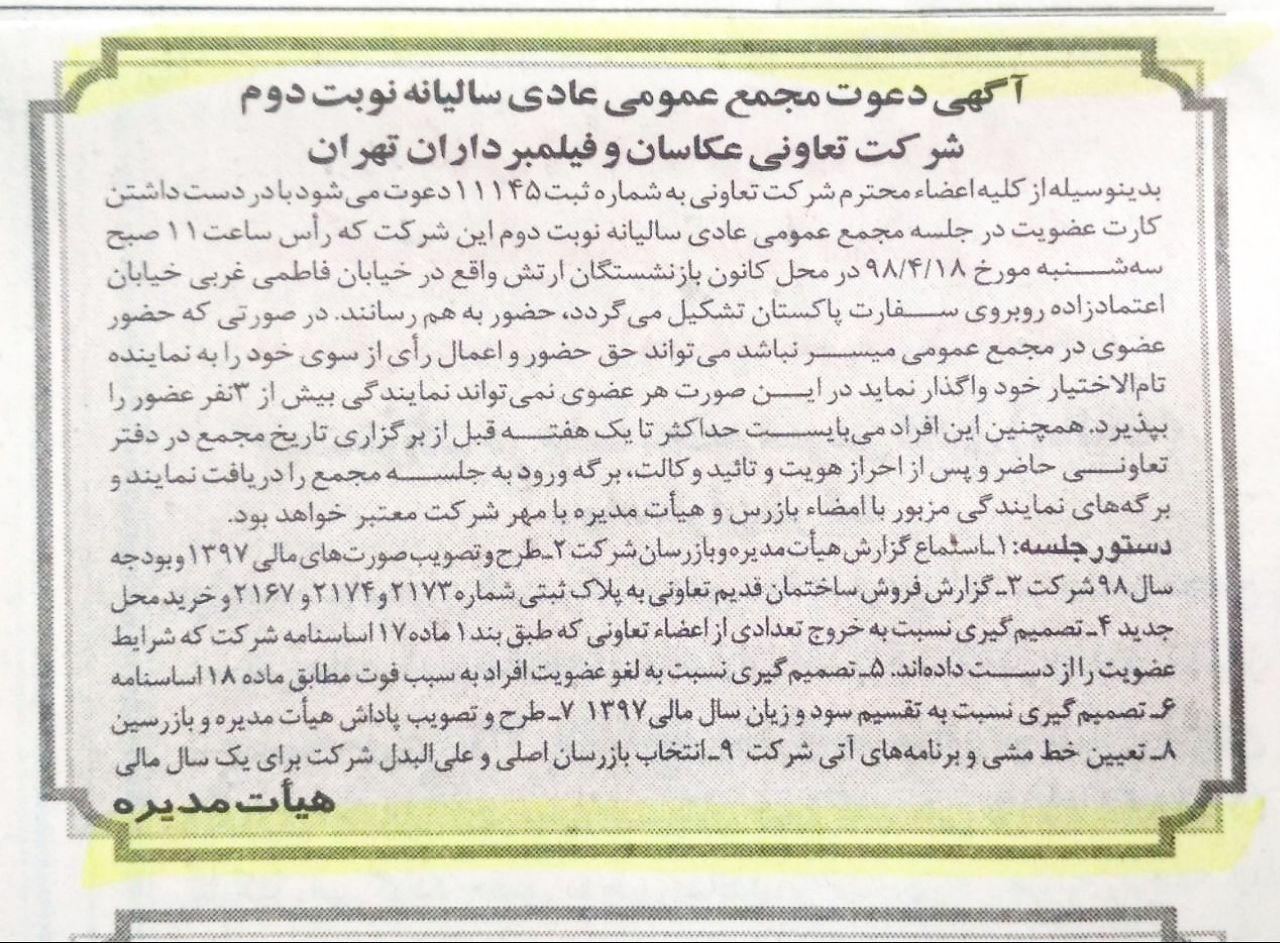 آگهی دعوت مجمع عمومی عادی سالیانه نوبت دوم
شرکت تعاونی عکاسان و فیلمبرداران تهران
بدینوسیله از کلیه اعضاء محترم شرکت تعاونی به شماره ثبت ۱۱۱۴۵ دعوت می‌شود با در دست داشتن
کارت عضویت در جلسه مجمع عمومی عادی سالیانه نوبت دوم این شرکت که رأس ساعت ۱۱ صبح
سه‌شنبه مورخ ۹۸/۴/۱۸ در محل کانون بازنشستگان ارتش واقع در خیابان فاطمی غربی خیابان
اعتمادزاده روبروی سفارت پاکستان تشکیل می‌گردد، حضور به هم رسانند. در صورتی که حضور
عضوی در مجمع عمومی میسر نباشد می‌تواند حق حضور و اعمال رأی از سوی خود را به نماینده
تام‌الاختیار خود واگذار نماید در این صورت هر عضوی نمی‌تواند نمایندگی بیش از ۳نفر عضور را
بپذیرد. همچنین این افراد می‌بایست حداکثر تا یک هفته قبل از برگزاری تاریخ مجمع در دفتر
تعاونی حاضر و پس از احراز هویت و تائید وکالت، برگه ورود به جلسه مجمع را دریافت نمایند و
برگه‌های نمایندگی مزبور با امضاء بازرس و هیأت مدیره با مهر شرکت معتبر خواهد بود.
دستور جلسه: ۱ـ استماع گزارش هیأت مدیره و بازرسان شرکت ۲ـ طرح و تصویب صورت‌های مالی ۱۳۹۷ و بودجه
سال ۹۸ شرکت ۳ـ گزارش فروش ساختمان قدیم تعاونی به پلاک ثبتی شماره ۲۱۷۳ و ۲۱۷۴ و ۲۱۶۷ و خرید محل
جدید ۴ـ تصمیم گیری نسبت به خروج تعدادی از اعضاء تعاونی که طبق بند ۱ ماده ۱۷ اساسنامه شرکت که شرایط
عضویت را از دست داده‌اند. ۵ـ تصمیم گیری نسبت به لغو عضویت افراد به سبب فوت مطابق ماده ۱۸ اساسنامه
۶ـ تصمیم گیری نسبت به تقسیم سود و زیان سال مالی ۱۳۹۷ ۷ـ طرح و تصویب پاداش هیأت مدیره و بازرسین
۸ـ تعیین خط مشی و برنامه‌های آتی شرکت ۹ـ انتخاب بازرسان اصلی و علی‌البدل شرکت برای یک سال مالی
هیأت مدیره